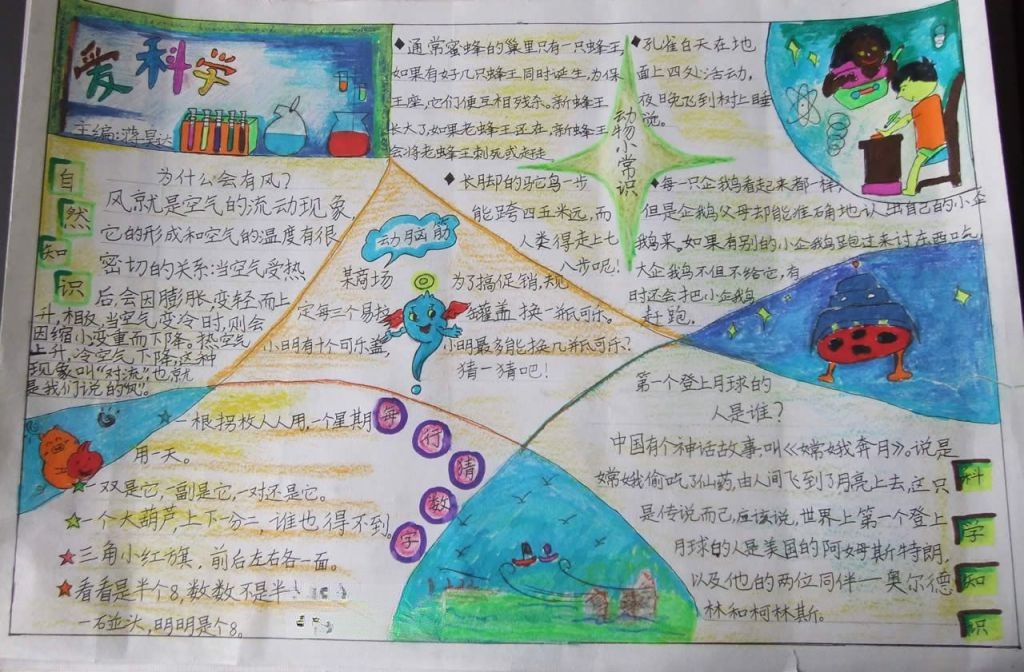 爱科学
主编:
自然知识
为什么会有风?
风就是空气的流动现象,
它的形成和空气的温度有很
密切的关系:当空气受热
后,会因膨胀、变轻而上
升,相反,当空气变冷时,则会
因缩小变重而下降。热空气
上升,冷空气下降,这种
现象叫“对流”也就
是我们说的风。
◆通常蜜蜂的巢里只有一只蜂王,
如果有好几只蜂王同时诞生,为保
王座,它们便互相残杀。新蜂王
长大了,如果老蜂王还在,新蜂王
会将老蜂王刺死或赶走
◆长脚的鸵鸟一步
能跨四五米远,而
人类得走上七
八步呢!
动物小常识
◆孔雀白天在地
面上四处活动,
夜晚飞到树上睡
觉。
◆每一只企鹅看起来都一样,
但是企鹅父母却能准确地认出自己的小企
鹅来。如果有别的小企鹅跑过来讨东西吃
大企鹅不但不给它,有
时还会把小企鹅
赶跑。
动脑筋
某商场为了搞促销,规
定每三个易拉罐盖换一瓶可乐。
小明有十个可乐盖,小明最多能换几瓶可乐?
猜一猜吧!
每行猜数字
★一根拐杖人人用,一个星期
用一天。
★一双是它,一副是它,一对还是它。
★一个大葫芦,上下一分二,谁也得不到。
★三角小红旗,前后左右各一面。
★看看是半个8,数数不是半
一碰头,明明是个8。
第一个登上月球的
人是谁?
中国有个神话故事:叫《嫦娥奔月》。说是
嫦娥偷吃了仙药,由人间飞到了月亮上去,这只
是传说而已,应该说,世界上第一个登上
月球的人是美国的阿姆斯特朗,
以及他的两位同伴——奥尔德
林和柯林斯。
科学知识